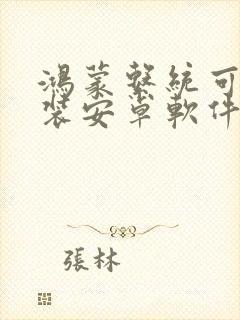 鴻蒙繫統可
裝安卓軟件
張林